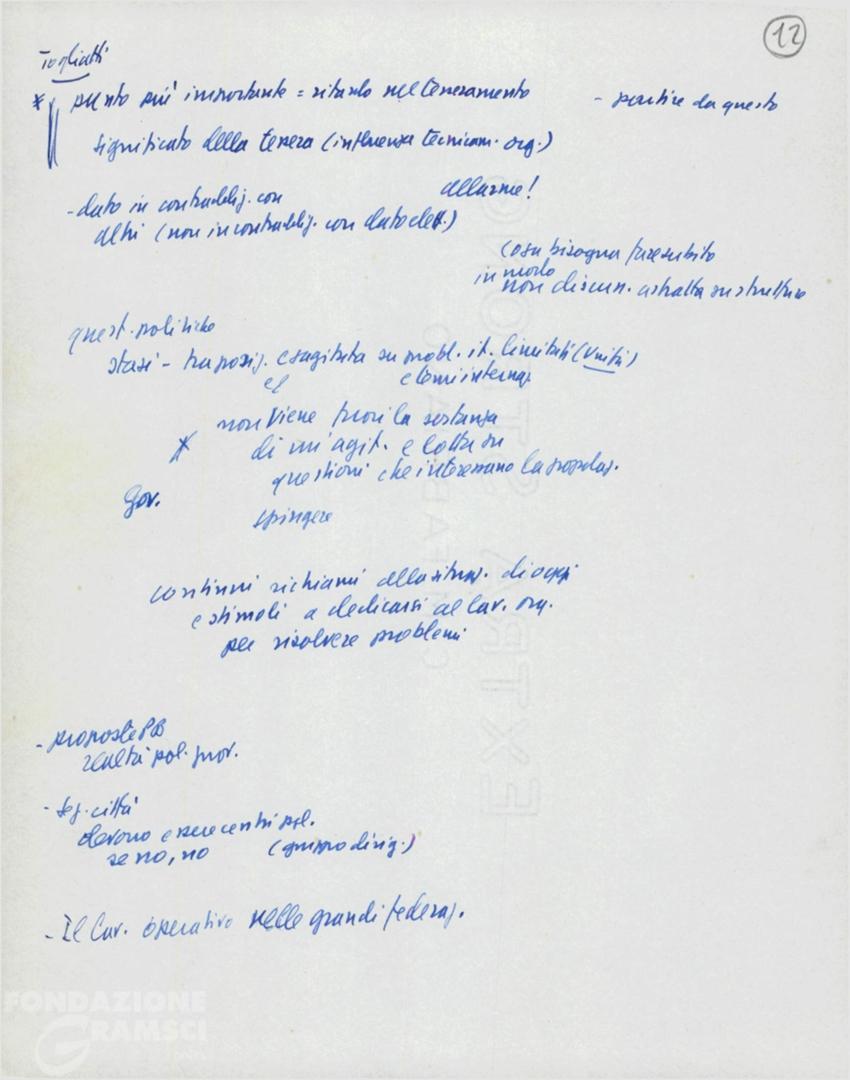 12
Togliatti
* punto più importante = ritardo nel tesseramento - partire da questo
significato della tessera (influenza tecnicam. org.)
- dato in contraddiz. con allarme!
altri (non in contraddiz. con dato elett.)
cosa bisogna fare subito
in modo
non discuss. astratta su strutture
quest. politiche
stasi - tra posiz. e agitata su probl. it. limitati (Unità)
e temi internaz.
non viene fuori la sostanza
* di un'agit. e lotta su
questioni che interessano la popolaz.
Gov.
spingere
continui richiami alla situaz. di oggi
e stimoli a dedicarsi al lav. org.
per risolvere problemi
- proposte PB
realtà pol. prov.
- seg. città
devono essere centri pol.
se no, no (gruppo dirig.)
- Il lav. operativo nelle grandi federaz.
FONDAZIONE
GRAMSCI
EXTRA STRONG
FABRIANO